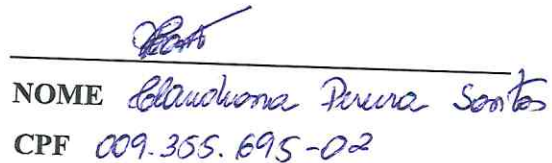 NOME Claudiana Pereira Santos
CPF 009.355.695-02